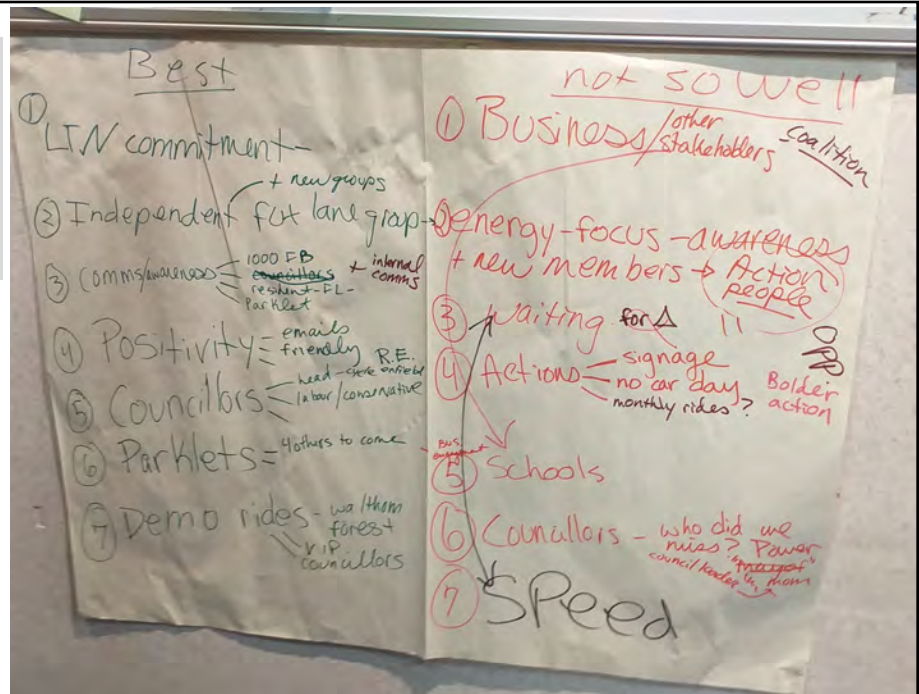 Best
① LTN commitment-
+ new groups
② Independent fox lane group→
③ Comms/awareness
1000 FB
councillors
resident-FL-
Parklet
+ internal comms
④ Positivity
emails
friendly
R.E.
⑤ Councillors
head -
labour/conservative
⑥ Parklets = 4 others to come
⑦ Demo rides - waltham
forest
VIP
councillors
not so well
① Business/other
stakeholders
Coalition
② energy-focus-awareness
+ new members → Action
people
③ waiting for Δ
④ Actions
signage
no car day
monthly rides?
Bolder
action
⑤ Schools
⑥ Councillors - who did we
miss? Power
council leader
mom
⑦ Speed